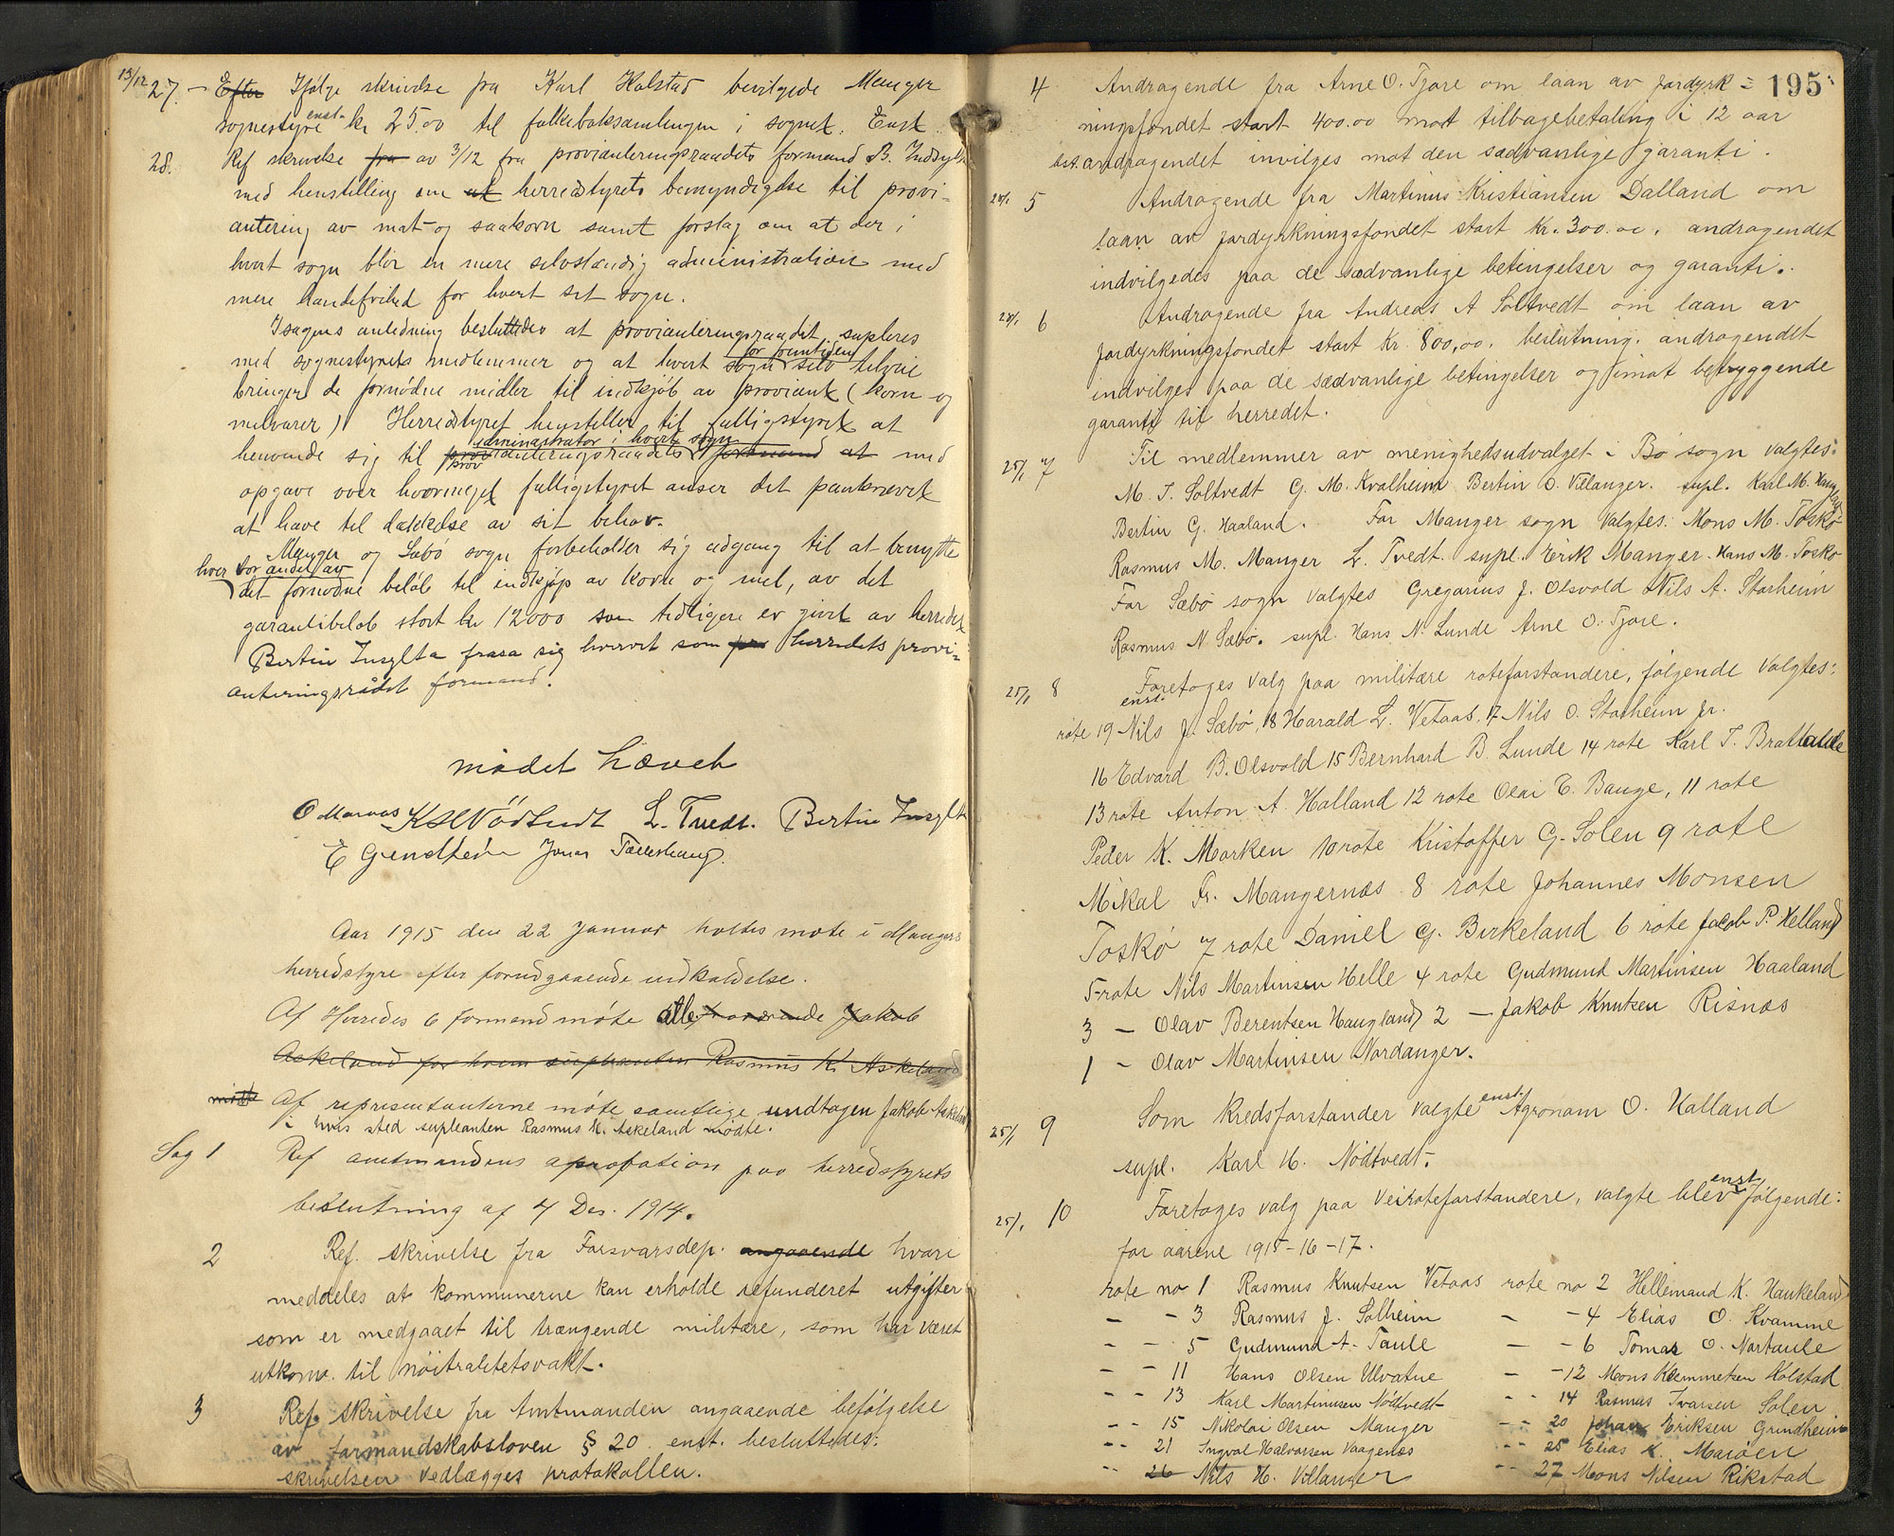 13/12 27. – Efter Ifølge skrivelse fra Karl Kolstad bevilgede Manger
sognestyre enst. kr 25.00 til folkeboksamlingen i sognet. Enst.
28. Ref skrivelse fra av 3/12 fra provianteringsraadets formand B.
med henstilling om at herredstyrets bemyndigelse til provi-
antering av mat- og saakorn samt forslag om at der i
hvert sogn blir en mere selvstændig administration med
mere handefrihed for hvert sit sogn.
I sagens anledning besluttedes at provianteringsraadet supleres
med sognestyrets medlemmer og at hvert sogn selv for framtiden tilveie
bringer de fornødne midler til indkjøb av proviant (korn og
melvarer) Herredstyret henstiller til fattigstyret at
henvende sig til provianteringsraadets administrator i hvert sogn formand at med
opgave over hvormeget fattigstyret anser det paakrævet
at have til dækkelse av sit behov.
Manger og Sæbø sogn forbeholder sig adgang til at benytte
hver vor andel av det fornødne beløb til indkjøp av korn og mel, av det
garantibeløb stort kr 12000 som tidligere er givet av herredet
Bertin frasa sig hvervet som herredets provi-
anteringsrådet formand.
mødet hævet
O Marøas K H Nödtvedt L. Tvedt. Bertin
E Grindheim Jonas
Aar 1915 den 22 Januar holtes møte i Mangers
herredstyre efter forudgaaende indkaldelse.
Af Herredes 6 formend møte alle fraværende Jakob
Askeland for hvem suplianten Rasmus K. Askeland
mødte Af representanterne møte samtlige undtagen Jakob Askeland
i hvis sted supleanten Rasmus K. Askeland mødte.
Sag 1 Ref amtmandens aprobation paa herredstyrets
beslutning af 4 Des. 1914.
2 Ref. skrivelse fra Forsvarsdep. angaaende hvori
meddeles at kommunerne kan erholde refunderet utgifter
som er medgaaet til trængende militære, som har været
utkom. til nøitralitetsvakt.
3 Ref. skrivelse fra Amtmanden angaaende beføIgelse
av formandskabsloven § 20. enst. besluttedes:
skrivelsen vedlægges protokollen.
195
4 Andragende fra Arne O. Tjore om laan av jordyrk=
ningsfondet stort 400.00 mot tilbagebetaling i 12 aar
best. andragendet invilges mot den sædvanlige garanti.
24/1 5 Andragende fra Martinus Kristiansen Dalland om
laan av jordyrkningsfondet stort Kr. 300.00. andragendet
indvilgedes paa de sædvanlige betingelser og garanti.
24/1 6 Andragende fra Andreas A Soltvedt om laan av
jordyrkningsfondet stort Kr. 800,00. beslutning. andragendet
indvilges paa de sædvanlige betingelser og imot betryggende
garanti til herredet.
25/1 7 Til medlemmer av menighedsudvalget – Bø sogn valgtes:
M. J. Soltvedt G. M. Kvalheim Bertin O. Vælanger. supl. Karl M. Haugland
Bertin G. Haaland. For Manger sogn valgtes: Mons M. Toskø
Rasmus M. Manger L. Tvedt. supl. Erik Manger. Hans M. Toskø
For Sæbø sogn valgtes Gregarius J. Olsvold Nils A. Storheim
Rasmus N Sæbø. supl. Hans N. Lunde Arne O. Tjore.
25/1 8 Foretoges valg paa militære roteforstandere, følgende valgtes:
enst.
rote 19 Nils J. Sæbø, 18 Harald L. Vetaas. 17 Nils O. Storheim jr.
16 Edvard B. Olsvold 15 Bernhard B. Lunde 14 rote Karl T. Brattaule
13 rote Anton A. Halland 12 rote Olai E. Bauge, 11 rote
Peder K. Marken 10 rote Kristoffer G. Solen 9 rote
Mikal Fr. Mangernæs 8 rote Johannes Monsen
Toskø 7 rote Daniel G. Birkeland 6 rote Jacob P. Helland
5 rote Nils Martinsen Helle 4 rote Gudmund Martinsen Haaland
3 – Olav Berentsen Haugland 2 – Jakob Knutsen Risnæs
1 – Olav Martinsen Nordanger.
25/1 9 Som kredsforstander valgte enst. Agronom O. Halland
supl. Karl H. Nødtvedt.
25/1 10 Foretoges valg paa veiroteforstandere, valgte blev enst. følgende:
for aarene 1915-16-17.
rote no 1 Rasmus Knutsen Vetaas rote no 2 Hellemand K. Haukeland
– – 3 Rasmus J. Solheim – – 4 Elias O. Kvamme
– – 5 Gudmund A. Taule – – 6 Tomas O. Nortaule
– – 11 Hans Olsen Ulvatne – – 12 Mons Klemmetsen Kolstad
– – 13 Karl Martinusen Nødtvedt – – 14 Rasmus Ivarsen Solen
– – 15 Nikolai Olsen Manger – – 20 Johan Eriksen Grindheim
– – 21 Ingval Halvorsen Vaagenes – – 25 Elias K. Marøen
– – 26 Nils H. Villanger – – 27 Mons Nilsen Rikstad